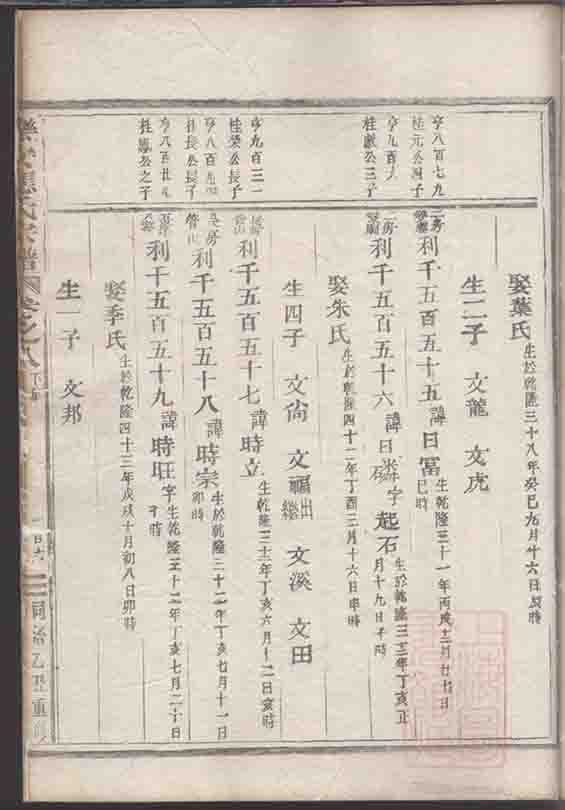 娶葉氏生於乾隆三十八年癸巳九月十六日辰時
生二子 文龍 文虎
亨八百七九
桂元公四子
利千五百五十五諱日冨生乾隆三十一年丙戌十二月廿七日巳時
亨九百
桂獻公三子
利千五百五十六諱日 字起石生於乾隆三三年丁亥正月十九日子時
娶朱氏生於乾隆四十二年丁酉三月十六日申時
生四子 文尙 文福出繼 文溪 文田
亨九百三一
桂榮公長子
利千五百五十七諱時立生乾隆三十二年丁亥六月十二日亥時
亨八百
桂長公長子
利千五百五十八諱時宗生於乾隆三十二年丁亥七月十一日卯時
亨八百
桂 公之子
利千五百五十九諱時旺字生乾隆三十二年丁亥七月二丁日子時
娶季氏生於乾隆四十三年戊戌十月初八日卯時
生一子 文邦
同治乙丑重